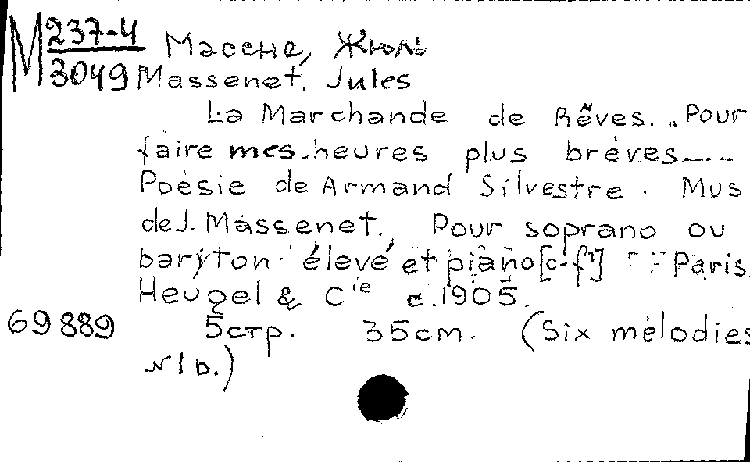 М 237-4 Массне, Жюль
3049 Massenet, Jules
La Marchande de Rêves. "Pour
faire mes heures plus brèves....
Poésie de Armand Silvestre. Mus
de J. Massenet. Pour soprano ou
baryton élevé et piano [c-f¹] Paris,
Heugel & Cie c.1905.
69889 5стр. 35cm. (Six mélodies
№ 1 b.)